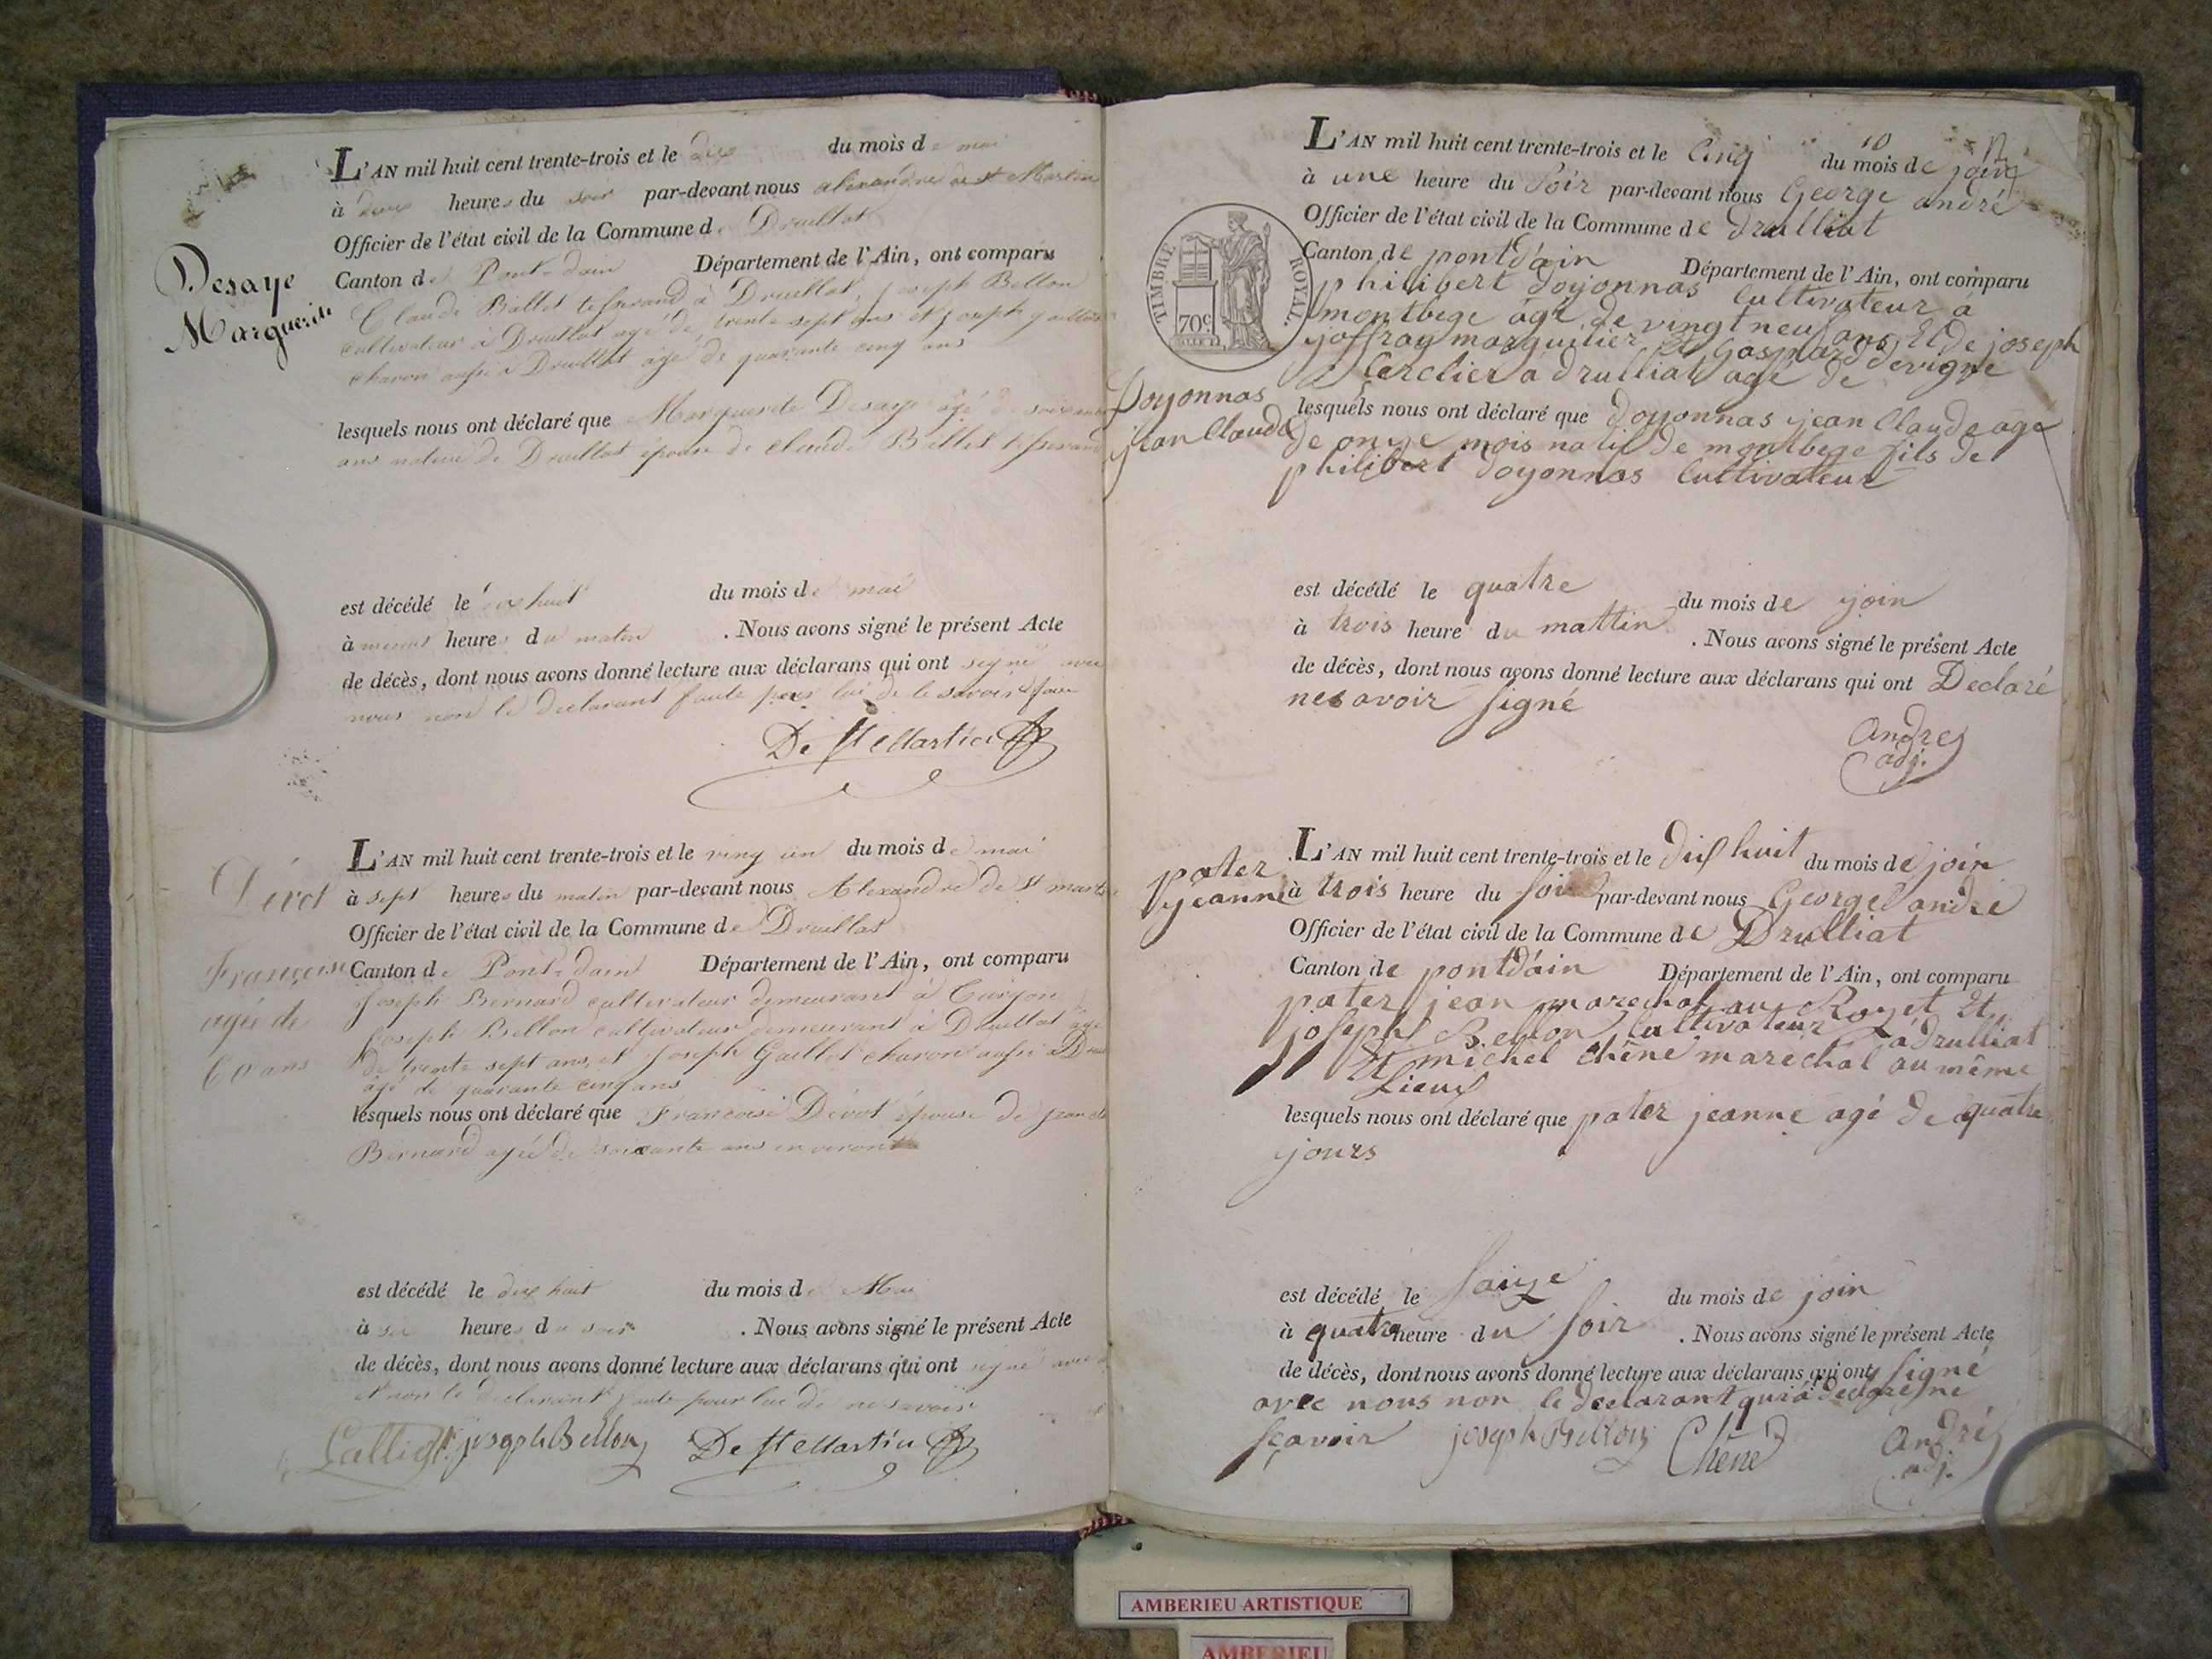 Desaye
Marguerite
L'AN mil huit cent trente-trois et le dix du mois de mai
à deux heures du soir par-devant nous alexandre de st Martin
Officier de l'état civil de la Commune de Druillat
Canton de Pont-dain Département de l'Ain, ont comparu
Claude Ballet tisserand à Druillat, joseph Bellon
cultivateur à Druillat agé de trente sept ans et joseph gaillet
charon aussi à Druillat âgé de quarante cinq ans
lesquels nous ont déclaré que Marguerite Desaye âgé de soixante
ans native de Druillat épouse de claude Ballet tisserand
est décédé le huit du mois de mai
à minuit heures du matin . Nous avons signé le présent Acte
de décès, dont nous avons donné lecture aux déclarans qui ont signé avec
nous non le declarant faute pour lui de le savoir faire
De St Martin
Dévot
Françoise
agée de
60 ans
L'AN mil huit cent trente-trois et le ving un du mois de mai
à sept heures du matin par-devant nous Alexandre de st martin
Officier de l'état civil de la Commune de Druillat
Canton de Pont-dain Département de l'Ain, ont comparu
Joseph Bernard cultivateur demeurant à
Joseph Bellon cultivateur demeurant à Druillat agé
de trente sept ans, et Joseph Gaillet charon aussi à
âgé de quarante cinq ans
lesquels nous ont déclaré que Francoise Dévot épouse de jean
Bernard agée de soixante ans environt
est décédé le dix huit du mois de Mai
à six heures du soir . Nous avons signé le présent Acte
de décès, dont nous avons donné lecture aux déclarans qui ont signé avec
et non le declarant faute pour lui de ne savoir
joseph Bellon De St Martin
10
L'AN mil huit cent trente-trois et le Cinq du mois de join
à une heure du Soir par-devant nous George andré
Officier de l'état civil de la Commune de Drulliat
Canton de pontdain Département de l'Ain, ont comparu
philibert doyonnas Cultivateur a
montbege âgé de vingt neuf ans Et de joseph
joffray marguilier Et Gaspard devigne
Cerclier a drulliat agé de
TIMBRE ROYAL.
70c
Doyonnas
jean Claude
lesquels nous ont déclaré que doyonnas jean Claude age
de onze mois natif de montbege fils de
philibert doyonnas Cultivateur
est décédé le quatre du mois de join
à trois heure du mattin . Nous avons signé le présent Acte
de décès, dont nous avons donné lecture aux déclarans qui ont Declaré
nesavoir signé
André
adj.
pater
jeanne
L'AN mil huit cent trente-trois et le dishuit du mois de join
à trois heure du soir par-devant nous George andré
Officier de l'état civil de la Commune de Drulliat
Canton de pontdain Département de l'Ain, ont comparu
pater jean marechal au Royet Et
joseph Bellon Cultivateur à drulliat
Et michel Chêne maréchal au même
Lieux
lesquels nous ont déclaré que pater jeanne agé de quatre
jours
est décédé le saize du mois de join
à quatre heure du soir . Nous avons signé le présent Acte
de décès, dont nous avons donné lecture aux déclarans qui ont signé
avec nous non le declarant qui a declaré ne
sçavoir joseph Bellon Chêne André
adj.
AMBERIEU ARTISTIQUE
AMBERIEU